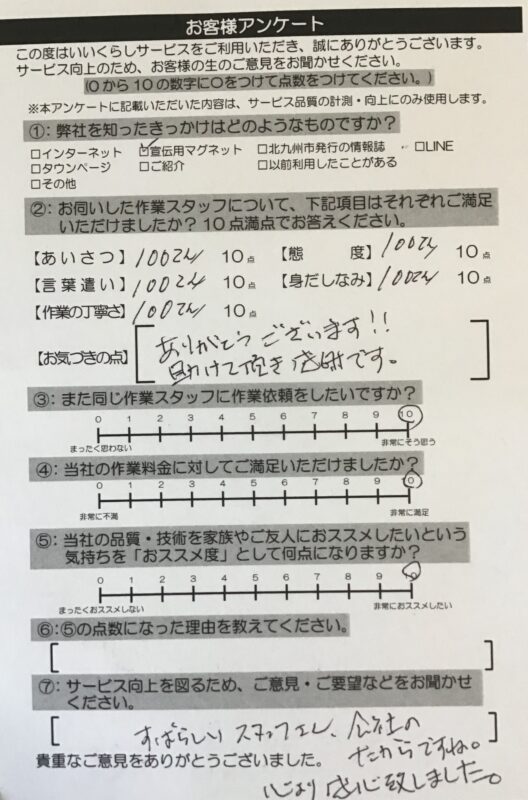 お客様アンケート
この度はいいくらしサービスをご利用いただき、誠にありがとうございます。
サービス向上のため、お客様の生のご意見をお聞かせください。
(0から10の数字に○をつけて点数をつけてください。)
※本アンケートに記載いただいた内容は、サービス品質の計測・向上にのみ使用します。
①：弊社を知ったきっかけはどのようなものですか？
□インターネット ☑宣伝用マグネット □北九州市発行の情報誌 □LINE
□タウンページ □ご紹介 □以前利用したことがある
□その他
②：お伺いした作業スタッフについて、下記項目はそれぞれご満足
いただけましたか？10点満点でお答えください。
【あいさつ】100てん 10点 【態 度】100てん 10点
【言葉遣い】100てん 10点 【身だしなみ】100てん 10点
【作業の丁寧さ】100てん 10点
ありがとうございます!!
【お気づきの点】助けて頂き感謝です。
③：また同じ作業スタッフに作業依頼をしたいですか？
0 1 2 3 4 5 6 7 8 9 10
まったく思わない 非常にそう思う
④：当社の作業料金に対してご満足いただけましたか？
0 1 2 3 4 5 6 7 8 9 10
非常に不満 非常に満足
⑤：当社の品質・技術を家族やご友人におススメしたいという
気持ちを「おススメ度」として何点になりますか？
0 1 2 3 4 5 6 7 8 9 10
まったくおススメしない 非常におススメしたい
⑥：⑤の点数になった理由を教えてください。
⑦：サービス向上を図るため、ご意見・ご要望などをお聞かせ
ください。
すばらしいスタッフさん、会社の
たからですね。
貴重なご意見をありがとうございました。
心より感心致しました。